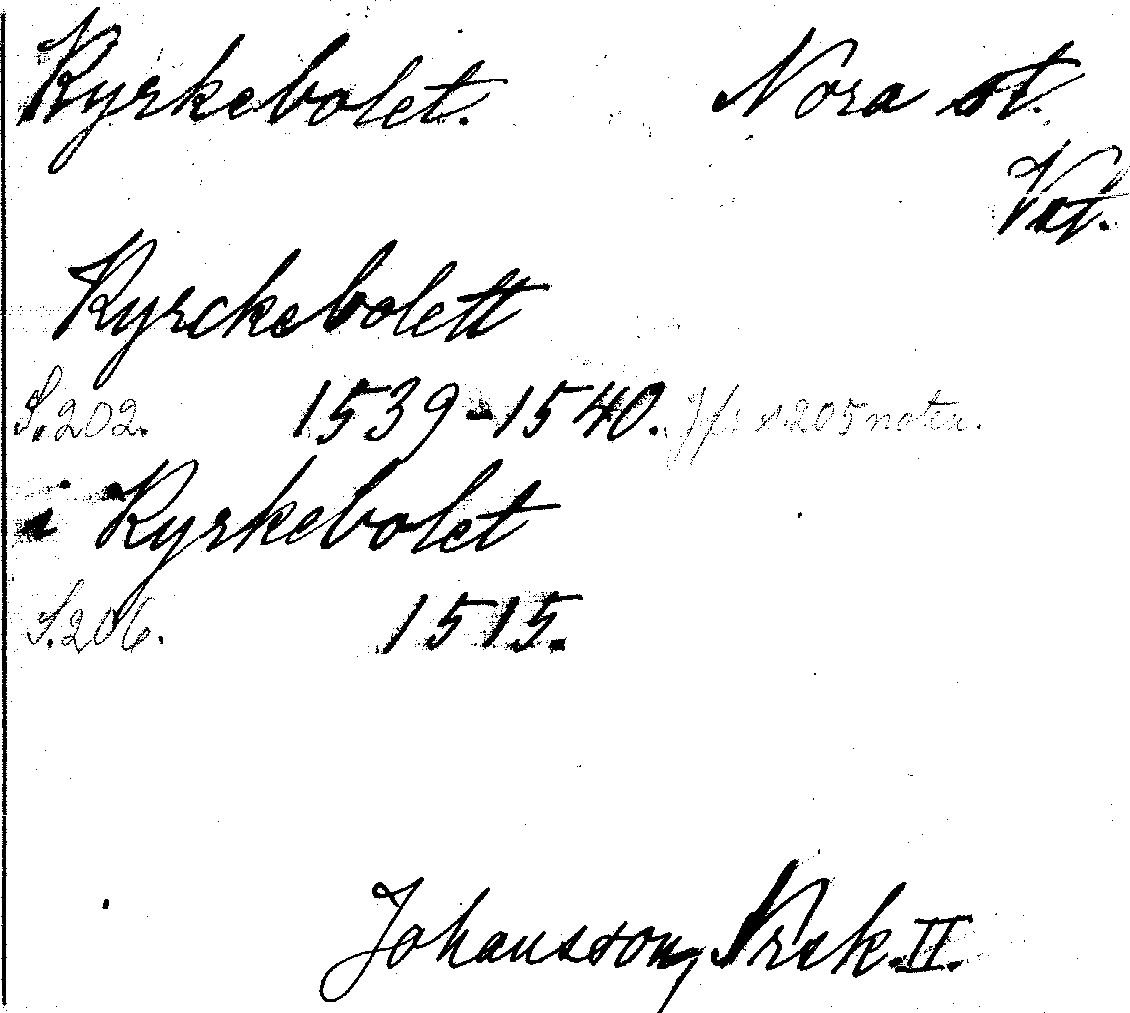 Kyrkebolet. Nora st.
Vst.
Kyrckebolett
S.202. 1539-1540. Jfr s.205 noten.
i Kyrkebolet
S.206. 1515.
Johansson, Nrsk. II.